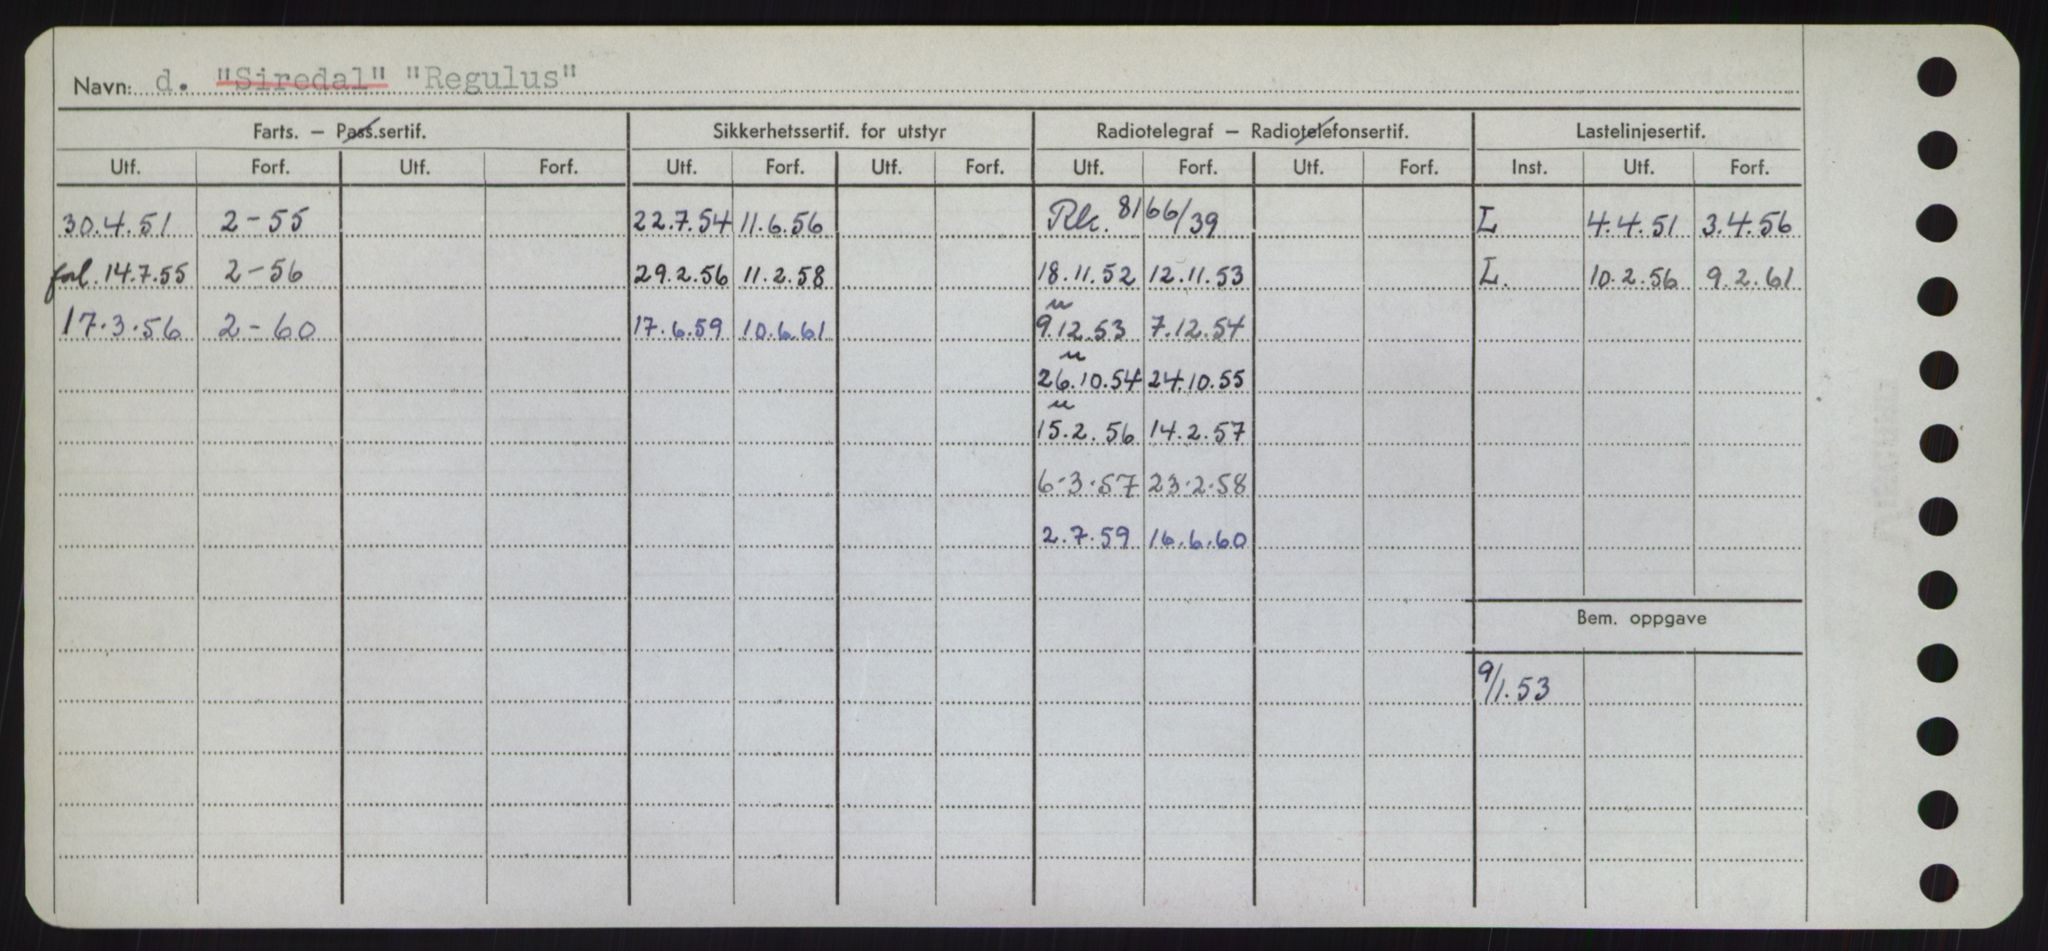 Navn: d. "Siredal" "Regulus"
Farts. – Pass.sertif. Sikkerhetssertif. for utstyr Radiotelegraf – Radiotelefonsertif. Lastelinjesertif.
Utf. Forf. Utf. Forf. Utf. Forf. Utf. Forf. Utf. Forf. Utf. Forf. Inst. Utf. Forf.
30.4.51 2-55 22.7.54 11.6.56 Rk. 8166/39 L 4.4.51 3.4.56
forl. 14.7.55 2-56 29.2.56 11.2.58 18.11.52 12.11.53 L. 10.2.56 9.2.61
u
17.3.56 2-60 17.6.59 10.6.61 9.12.53 7.12.54
u
26.10.54 24.10.55
u
15.2.56 14.2.57
6.3.57 23.2.58
2.7.59 16.6.60
Bem. oppgave
9/1.53